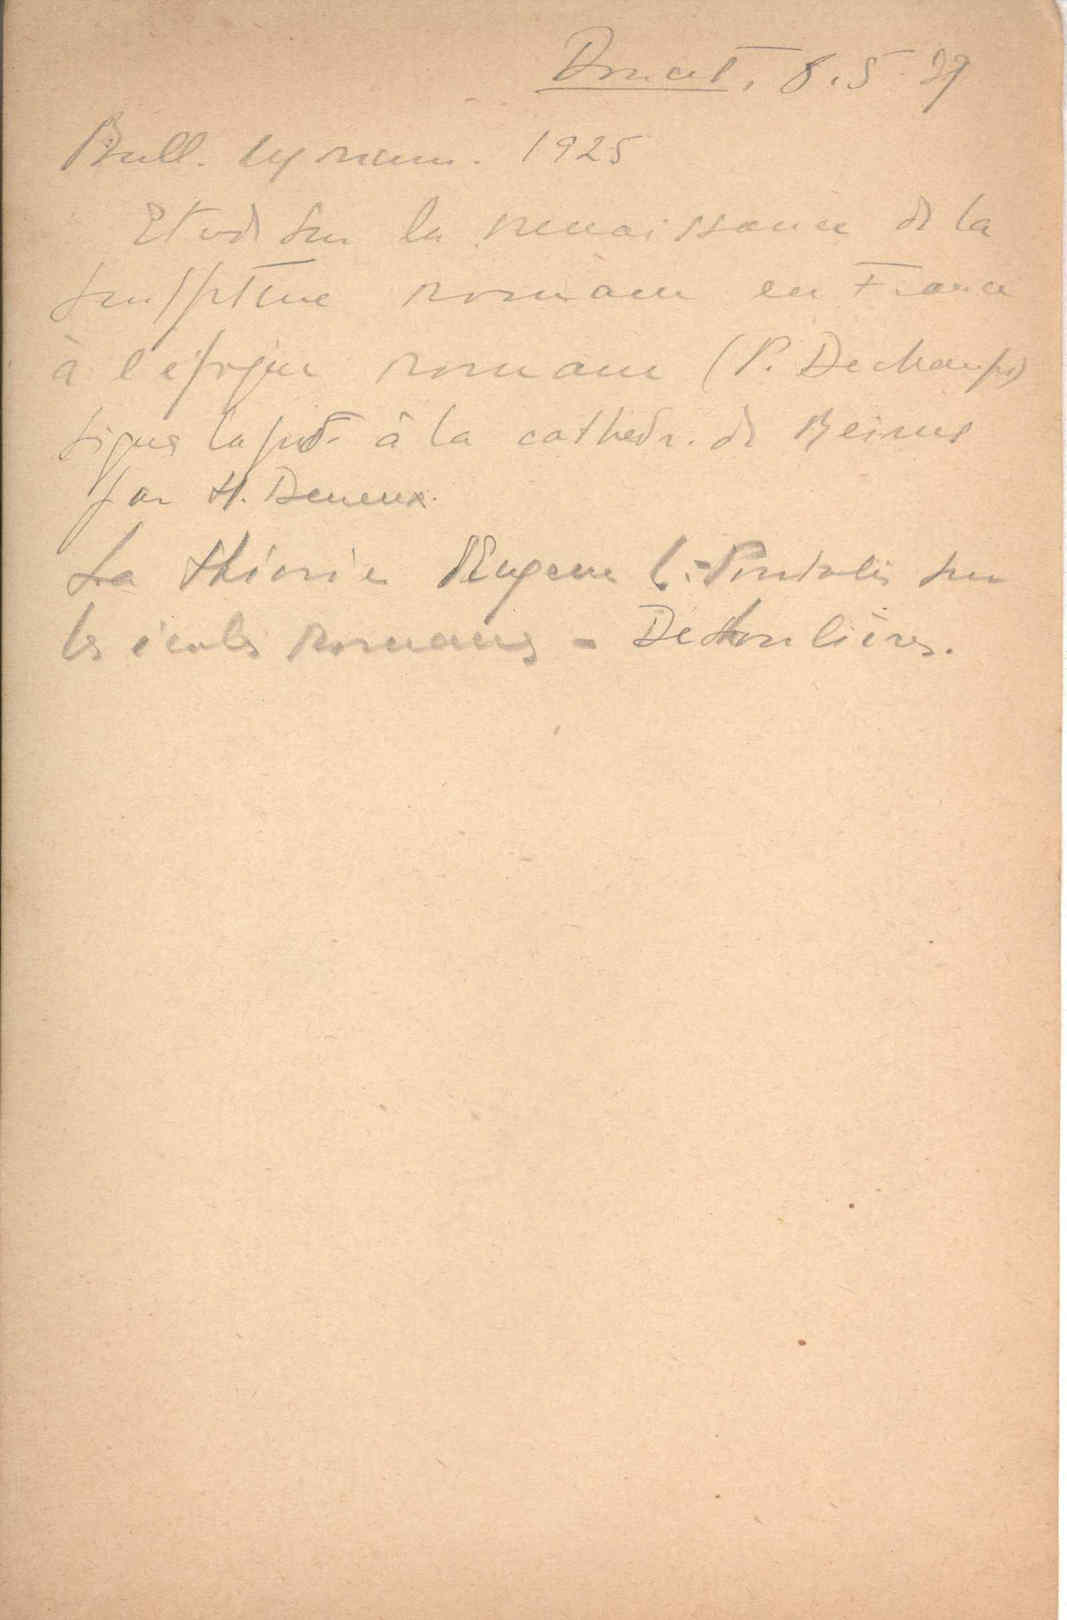 8.5.39
Bull. 1925
Etude sur la renaissance de la
sculpture romane en France
à l'epoque romane (P. Deschamps)
signes lapid. à la cathedr. de Reims
par H. Deneux.
La théorie d'Eugene L. sur
les écoles romanes - Deshoulières.